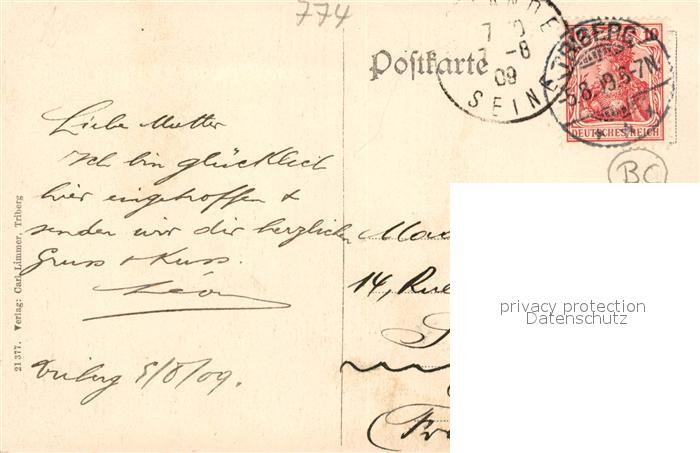 774
Postkarte
7-8
09
SEINE
TRIBERG
5.8.09.6-7N.
10
DEUTSCHES REICH
BC
Liebe Mutter
Ich bin glücklich
hier eingetroffen +
senden wir dir herzlichen
Gruss + Kuss.
Léon
Triberg 5/8/09.
Mad
14, Rue
(Fr
21377. Verlag: Carl Limmer, Triberg
privacy protection
Datenschutz